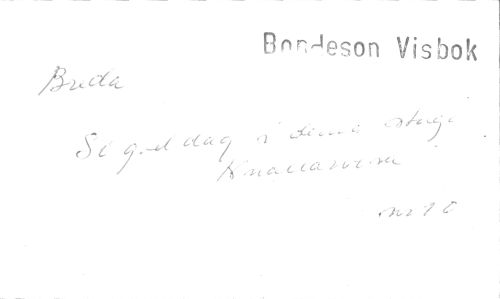 Bondeson Visbok
Breda
Si god dag i denna stuga
Knallavisa
nr 10